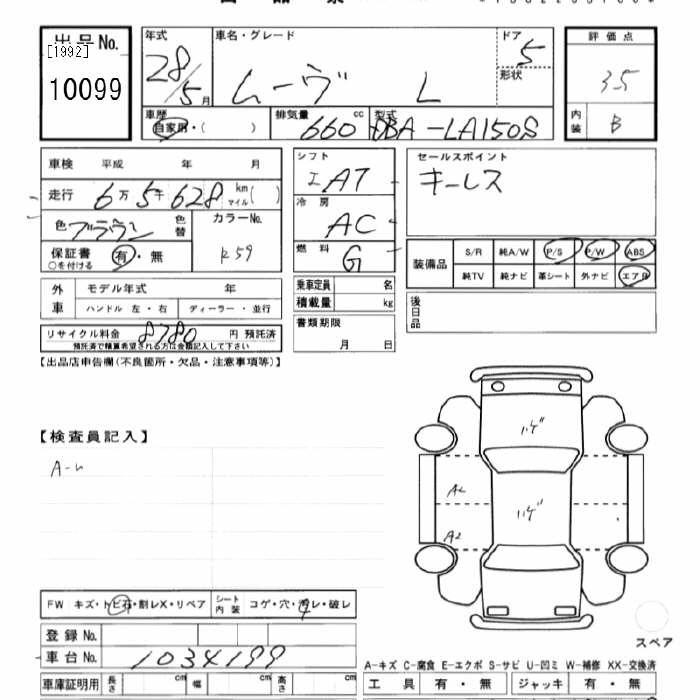 出品No.
[1992]
10099
年式
28/5月
車名・グレード
ムーヴ L
ドア
5
形状
評価点
3.5
内装
B
車歴
自家用・( )
排気量
660 cc
型式
DBA-LA150S
車検 平成 年 月
走行 6万5千628 km マイル( )
色 ブラウン 色替
カラーNo.
R59
保証書 有・無
○を付ける
シフト
I AT
冷房
AC
燃料
G
セールスポイント
キーレス
装備品
S/R 純A/W P/S P/W ABS
純TV 純ナビ 革シート 外ナビ エアB
外車
モデル年式 年
ハンドル 左・右 ディーラー・並行
乗車定員 名
積載量 kg
後日品
リサイクル料金 8780 円 預託済
預託済で精算希望される方は金額記入して下さい
書類期限
月 日
【出品店申告欄(不良箇所・欠品・注意事項等)】
【検査員記入】
A-U
ハゲ
ハゲ
A2
A2
FW キズ・トビ石・割レX・リペア
シート内装 コゲ・穴・汚レ・破レ
登録No.
車台No. 1034199
スペア
A-キズ C-腐食 E-エクボ S-サビ U-凹ミ W-補修 XX-交換済
車庫証明用 長さ cm 幅 cm 高さ cm
工具 有・無 ジャッキ 有・無